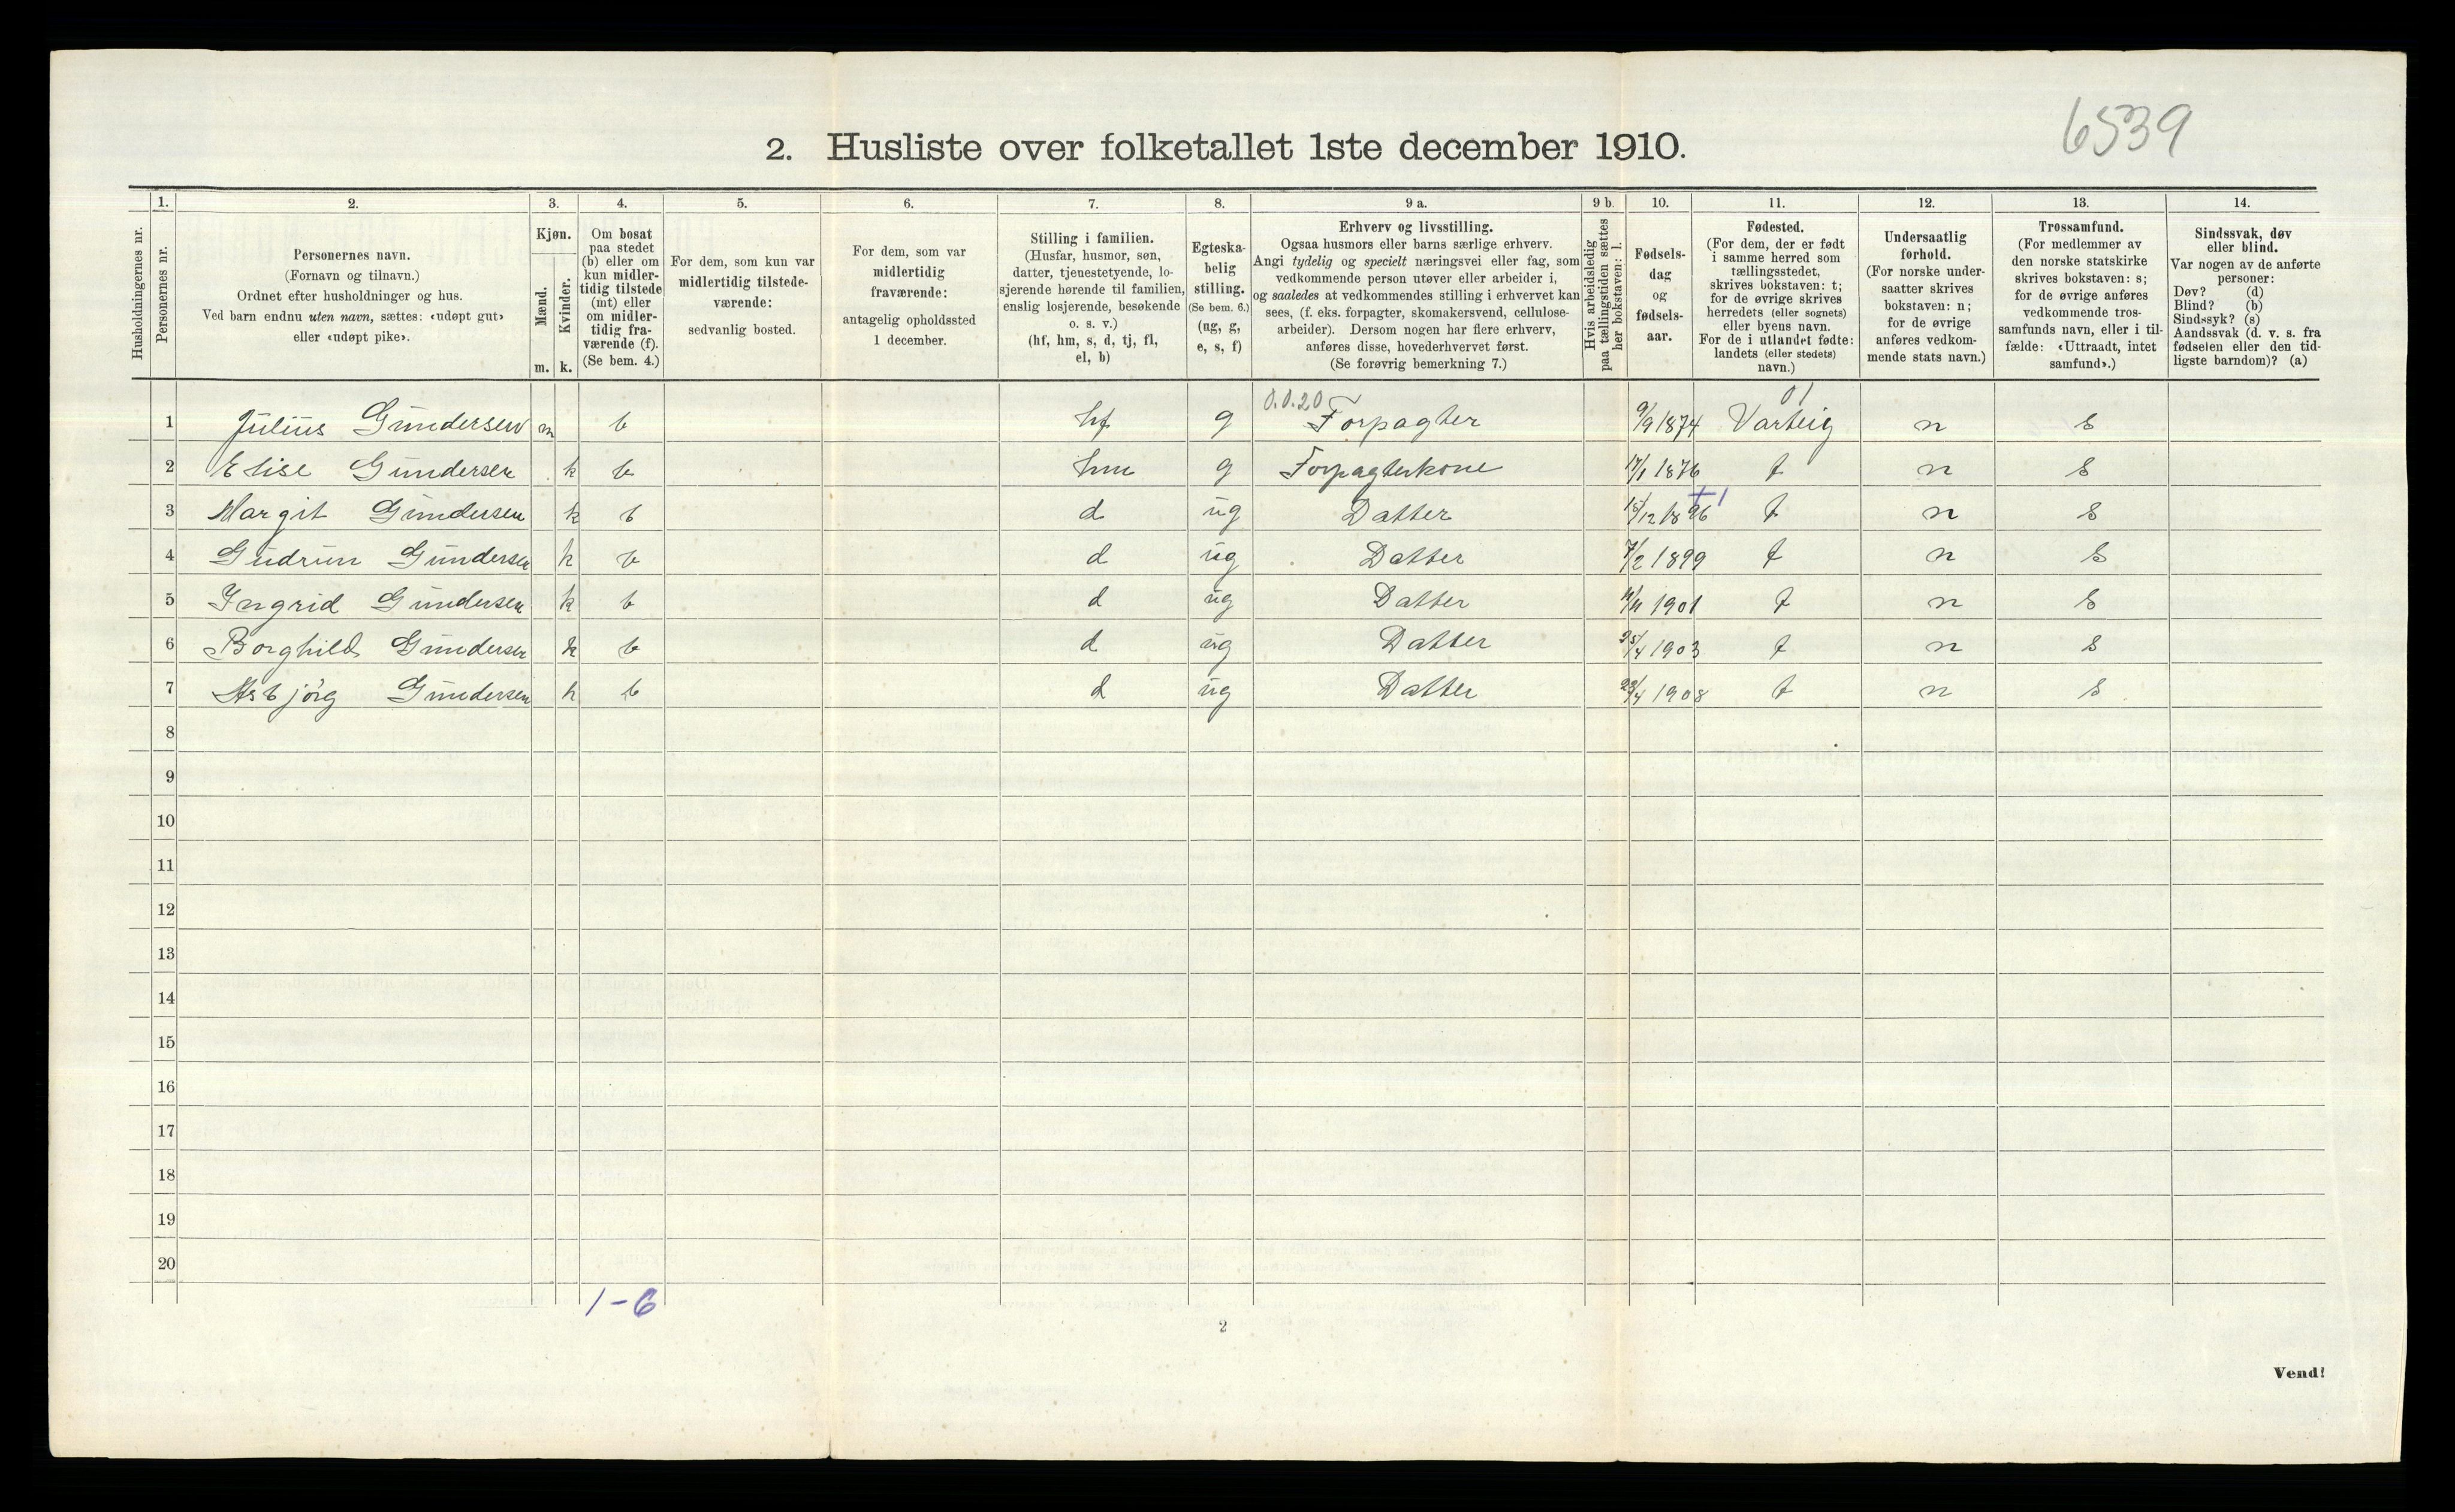 6539
2. Husliste over folketallet 1ste december 1910.
Husholdningernes nr.
1.
Personernes nr.
2.
Personernes navn.
(Fornavn og tilnavn.)
Ordnet efter husholdninger og hus.
Ved barn endnu uten navn, sættes: «udøpt gut»
eller «udøpt pike».
3.
Kjøn.
Mænd.
Kvinder.
m.
k.
4.
Om bosat
paa stedet
(b) eller om
kun midler-
tidig tilstede
(mt) eller
om midler-
tidig fra-
værende (f).
(Se bem. 4.)
5.
For dem, som kun var
midlertidig tilstede-
værende:
sedvanlig bosted.
6.
For dem, som var
midlertidig
fraværende:
antagelig opholdssted
1 december.
7.
Stilling i familien.
(Husfar, husmor, søn,
datter, tjenestetyende, lo-
sjerende hørende til familien,
enslig losjerende, besøkende
o. s. v.)
(hf, hm, s, d, tj, fl,
el, b)
8.
Egteska-
belig
stilling.
(Se bem. 6.)
(ug, g,
e, s, f)
9 a.
Erhverv og livsstilling.
Ogsaa husmors eller barns særlige erhverv.
Angi tydelig og specielt næringsvei eller fag, som
vedkommende person utøver eller arbeider i,
og saaledes at vedkommendes stilling i erhvervet kan
sees, (f. eks. forpagter, skomakersvend, cellulose-
arbeider). Dersom nogen har flere erhverv,
anføres disse, hovederhvervet først.
(Se forøvrig bemerkning 7.)
9 b.
Hvis arbeidsledig
paa tællingstiden sættes
her bokstaven: l.
10.
Fødsels-
dag
og
fødsels-
aar.
11.
Fødested.
(For dem, der er født
i samme herred som
tællingsstedet,
skrives bokstaven: t;
for de øvrige skrives
herredets (eller sognets)
eller byens navn.
For de i utlandet fødte:
landets (eller stedets)
navn.)
12.
Undersaatlig
forhold.
(For norske under-
saatter skrives
bokstaven: n;
for de øvrige
anføres vedkom-
mende stats navn.)
13.
Trossamfund.
(For medlemmer av
den norske statskirke
skrives bokstaven: s;
for de øvrige anføres
vedkommende tros-
samfunds navn, eller i til-
fælde: «Uttraadt, intet
samfund».)
14.
Sindssvak, døv
eller blind.
Var nogen av de anførte
personer:
Døv? (d)
Blind? (b)
Sindssyk? (s)
Aandssvak (d. v. s. fra
fødselen eller den tid-
ligste barndom)? (a)
0.0.20 01
1 Julius Gundersen m b hf g Forpagter 9/9 1874 Varteig n s
2 Elise Gundersen k b hm g Forpagterkone 17/1 1876 t n s
3 Margit Gundersen k b d ug Datter 15/12 1896 t n s
4 Gudrun Gundersen k b d ug Datter 7/2 1899 t n s
5 Ingrid Gundersen k b d ug Datter 1901 t n s
6 Borghild Gundersen k b d ug Datter 25/4 1903 t n s
7 Asbjörg Gundersen k b d ug Datter 23/4 1908 t n s
8
9
10
11
12
13
14
15
16
17
18
19
20
1-6
2
Vend!